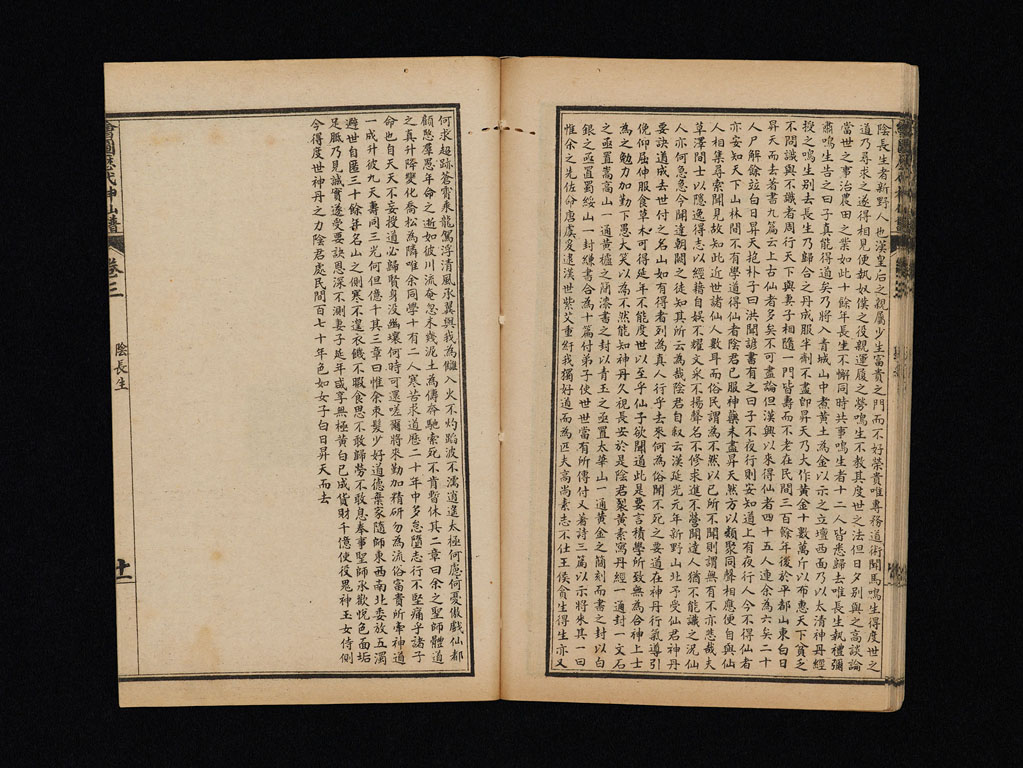 陰長生者新野人也漢皇后之親屬少生富貴之門而不好榮貴唯專務道術聞馬鳴生得度世之
道乃尋求之遂得相見便執奴僕之役親運履之勞鳴生不教其度世之法但日夕別與之高談論
當世之事治農田之業如此十餘年長生不懈同時共事鳴生者十二人皆悉歸去唯長生執禮彌
肅鳴生告之曰子真能得道矣乃將入青城山中煮黃土為金以示之立壇西面乃以太清神丹經
授之鳴生別去長生乃歸合之丹成服半劑不盡即昇天乃大作黃金十數萬斤以布惠天下貧乏
不問識與不識者周行天下與妻子相隨一門皆壽而不老在民間三百餘年後於平都山東白日
昇天而去著書九篇云上古仙者多矣不可盡論但漢興以來得仙者四十五人連余為六矣二十
人尸解餘竝白日昇天抱朴子曰洪聞諺書有之曰子不夜行則安知道上有夜行人今不得仙者
亦安知天下山林間不有學道得仙者陰君已服神藥未盡昇天然方以類聚同聲相應便自與仙
人相集尋索聞見故知此近世諸仙人數耳而俗民謂為不然以己所不聞則謂無有不亦悲哉夫
草澤間士以隱逸得志以經籍自娛不耀文采不揚聲名不修求進不營聞達人猶不能識之況仙
人亦何急急令聞達朝闕之徒知其所云為哉陰君自叙云漢延光元年新野山北予受仙君神丹
要訣道成去世付之名山如有得者列為真人行乎去來何為俗聞不死之要道在神丹行氣導引
俛仰屈伸服食草木可得延年不能度世以至乎仙子欲聞道此是要言積學所致無為合神上士
為之勉力加勤下愚大笑以為不然能知神丹久視長安於是陰君裂黃素寫丹經一通封一文石
之函置嵩高山一通黃櫨之簡漆書之封以青玉之函置太華山一通黃金之簡刻而書之封以白
銀之函置蜀綏山一封縑書合為十篇付弟子使世世當有所傳付又著詩三篇以示將來其一曰
惟余之先佐命唐虞爰逮漢世紫艾重紆我獨好道而為匹夫高尚素志不仕王侯貪生得生亦又
何求超跡蒼霄乘龍駕浮清風承翼與我為讎入火不灼蹈波不濡逍遙太極何慮何憂傲戲仙都
顧愍羣愚年命之逝如彼川流奄忽未幾泥土為儔奔馳索死不肯暫休其二章曰余之聖師體道
之真升降變化喬松為隣唯余同學十有二人寒苦求道歷二十年中多怠墮志行不堅痛乎諸子
命也自天天不妄授道必歸賢身沒幽壤何時可還嗟爾將來勤加精研勿為流俗富貴所牽神道
一成升彼九天壽同三光何但億千其三章曰惟余束髮少好道德棄家隨師東西南北委放五濁
避世自匿三十餘年名山之側寒不遑衣饑不暇食思不敢歸勞不敢息奉事聖師承歡悅色面垢
足胝乃見誠實遂受要訣恩深不測妻子延年咸享無極黃白已成貨財千億使役鬼神玉女侍側
今得度世神丹之力陰君處民間百七十年色如女子白日昇天而去
會圖歷代神仙譜
卷三
陰長生
十一